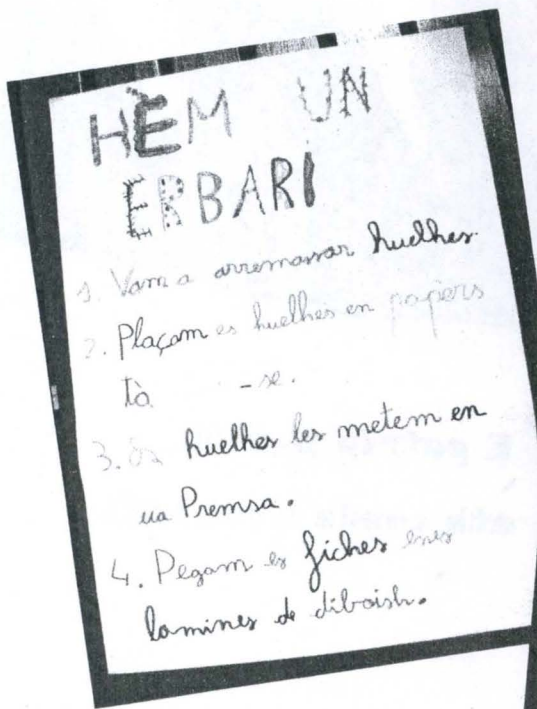 HÈM UN
ERBARI
1. Vam a arremassar huelhes.
2. Plaçam es huelhes en papèrs
tà -se.
3. es huelhes les metem en
ua Premsa.
4. Pegam es fiches enes
lamines de diboish.